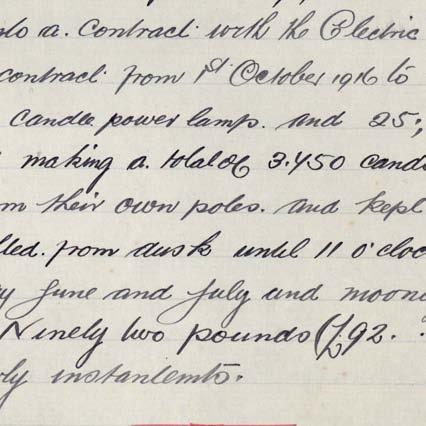 a. contract with the Electric
contract from 1st October 1916 to
candle power lamp. and 25;
making a. total of 3.450
their own poles. and kept
from dusk until 11 o'cloc
June and July and
Ninely two pounds (£92.
instanlemts.